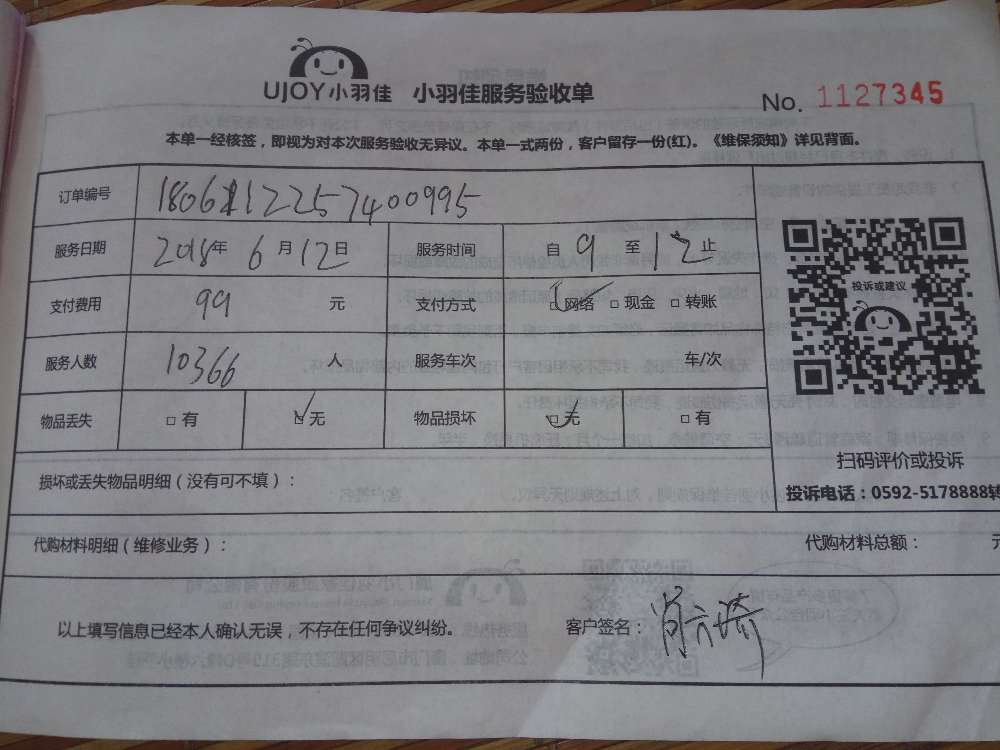 UJOY小羽佳 小羽佳服务验收单 No. 1127345
本单一经核签，即视为对本次服务验收无异议。本单一式两份，客户留存一份(红)。《维保须知》详见背面。
订单编号
服务日期 2018年 6月12日 服务时间 自 9 至 12 止
支付费用 99 元 支付方式 □网络 □现金 □转账
服务人数 10366 人 服务车次 车/次
物品丢失 □有 □无 物品损坏 □无 □有
投诉或建议
扫码评价或投诉
投诉电话：0592-5178888转
损坏或丢失物品明细（没有可不填）：
代购材料明细（维修业务）： 代购材料总额：
以上填写信息已经本人确认无误，不存在任何争议纠纷。 客户签名：